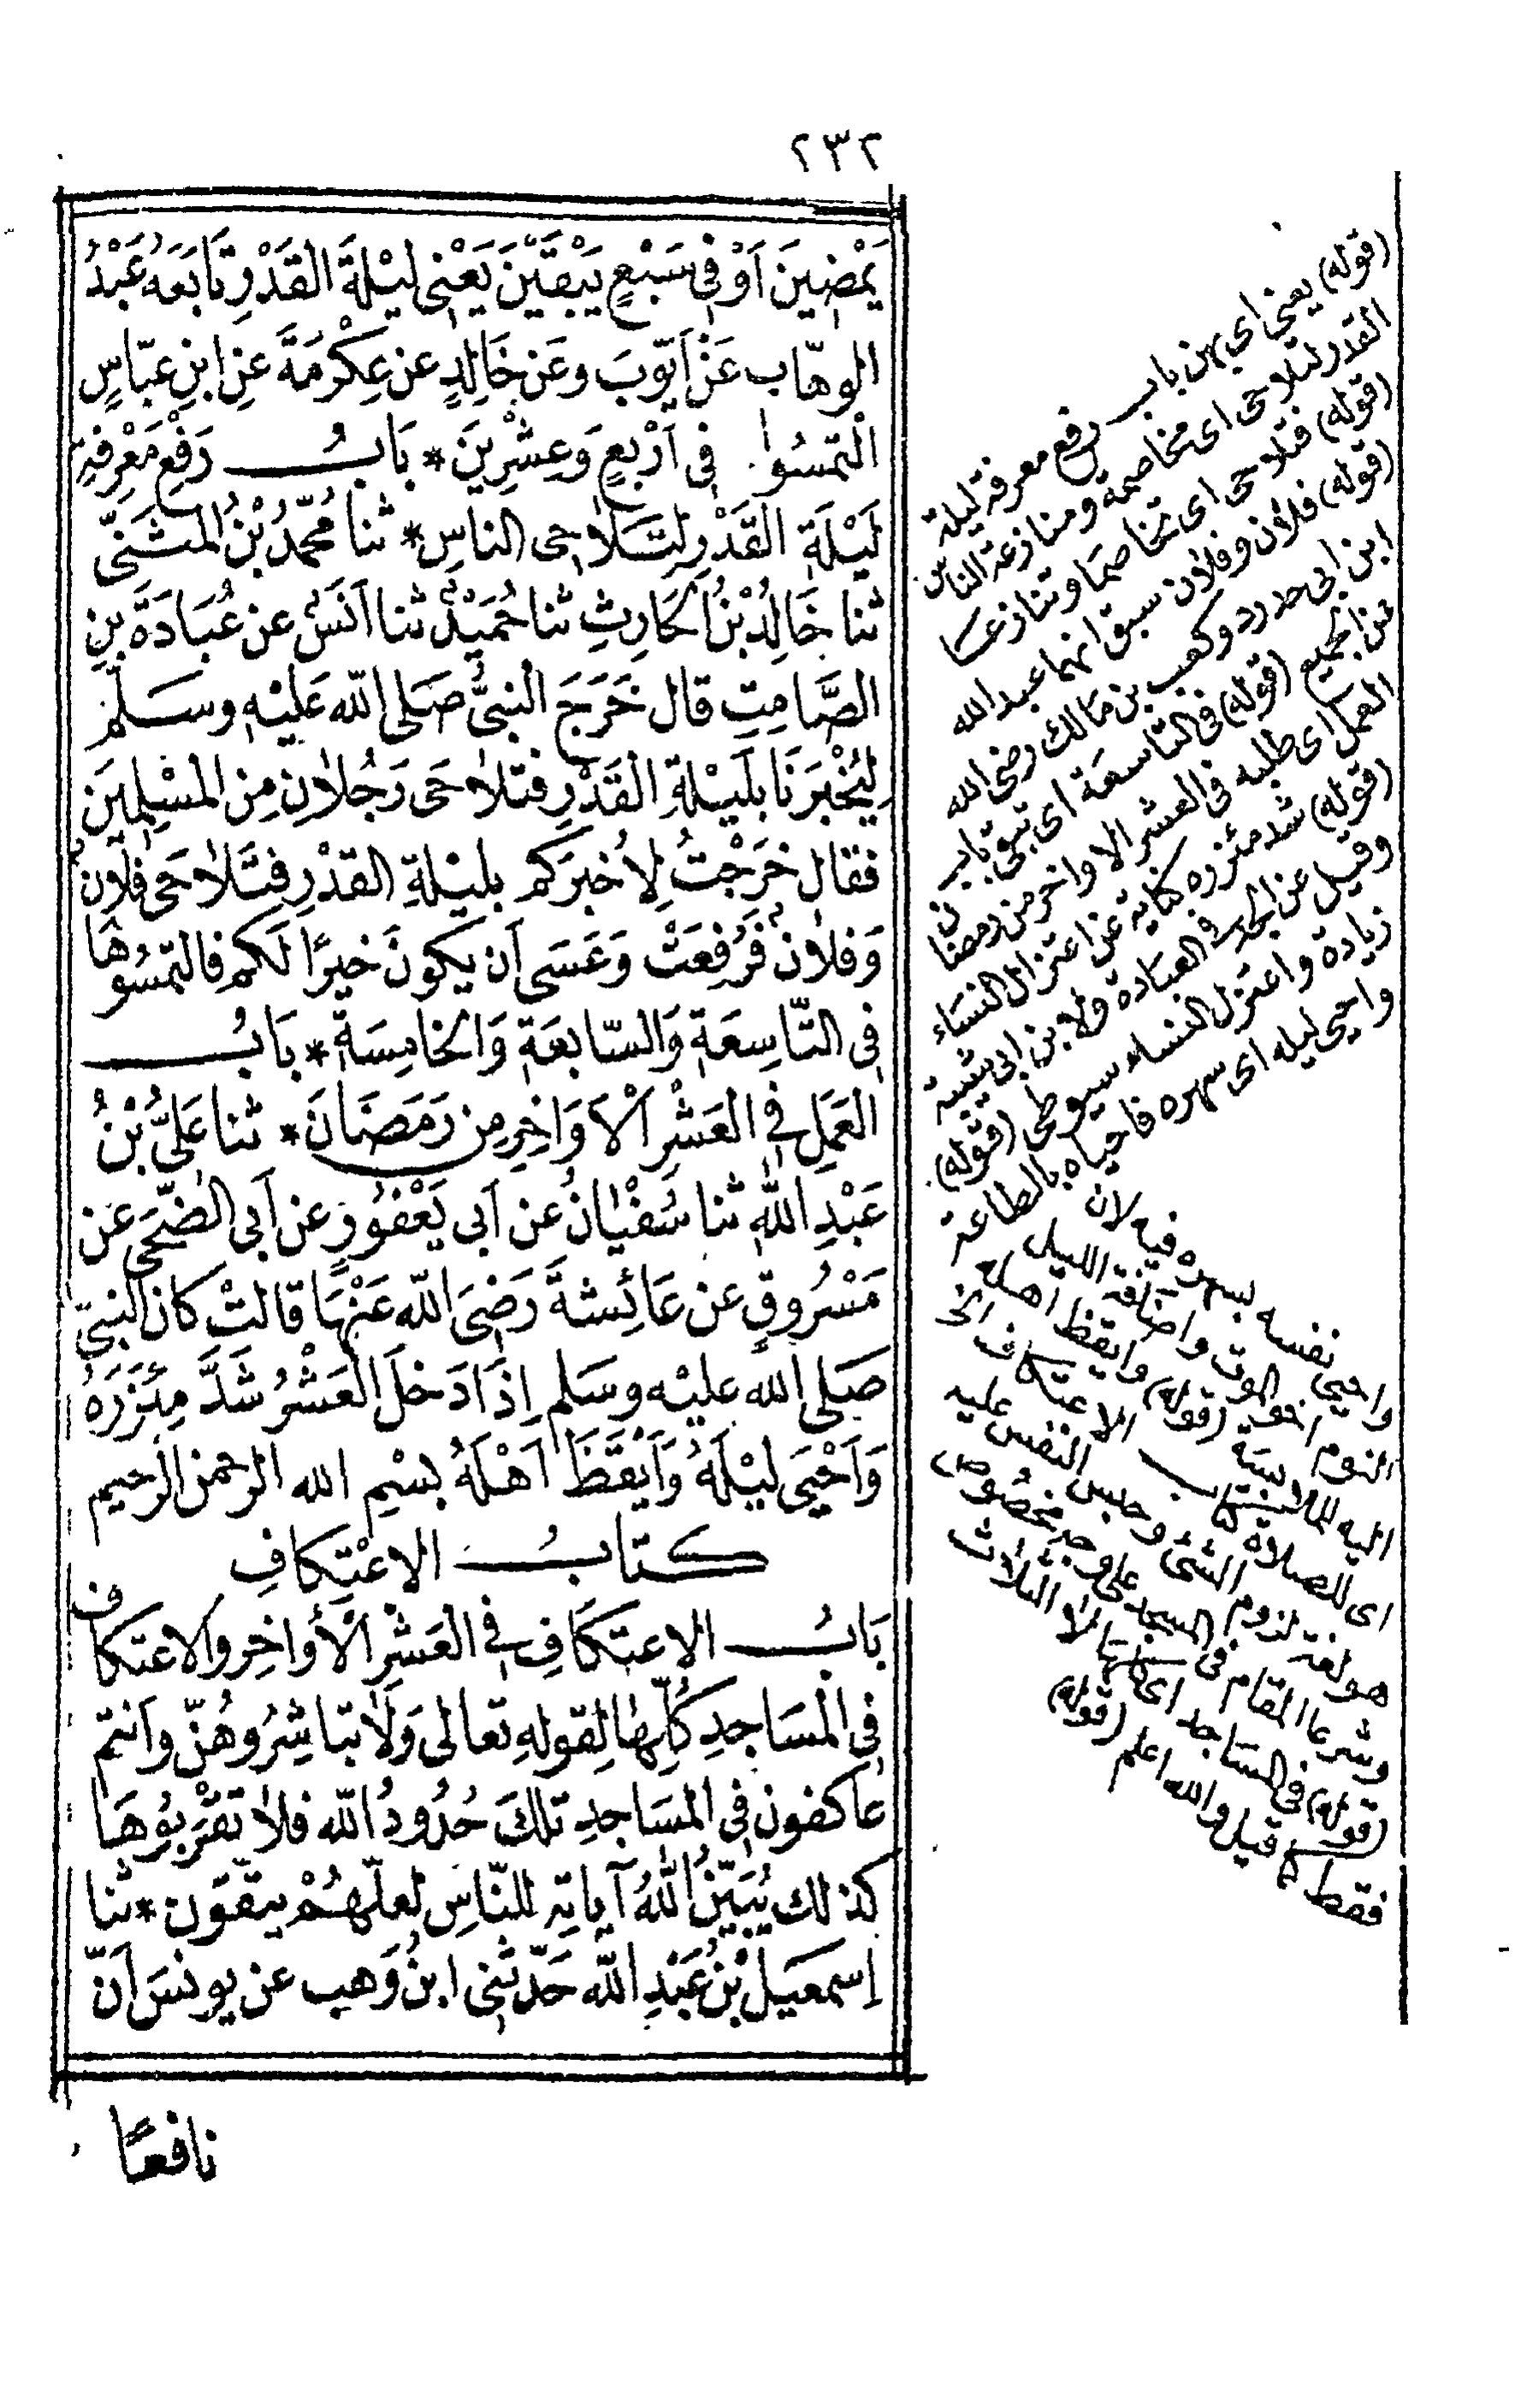 ٢٣٢
يَمْضِينَ اَوْ فِى سَبْعٍ يَبْقَيْنَ يَعْنِى لَيْلَةَ القَدْرِ تَابَعَهُ عَبْدُ
الوهّاب عَنْ اَيّوبَ وعَن خَالِدٍ عن عِكْرِمَةَ عَنِ ابنِ عبّاسٍ
الْتَمِسُوا فِى اَرْبَعٍ وَعِشْرِينَ * بَابُ رَفْعِ مَعْرِفَةِ
لَيْلَةِ القَدْرِ لِتَلَاحِى الناسِ * ثنا مُحَمَّدُ بْنُ المثَنَّى
ثنا خَالِدُ بْنُ الحَارِثِ ثنا حُمَيْدٌ ثنا اَنَسٌ عن عُبَادَةَ بنِ
الصَّامِتِ قال خَرَجَ النبىُّ صَلى الله عَليْهِ وسَلّم
لِيُخْبِرَنَا بلَيْلةِ القَدْرِ فتلاحَى رَجُلانِ مِنَ المُسْلِمِينَ
فقال خَرَجْتُ لِأُخبِرَكم بليْلةِ القدْرِ فتَلاحَى فلان
وَفلانٌ فَرُفِعَتْ وَعَسَى اَن يكونَ خيرًا لَكم فالتمسُوها
فى التّاسِعَةِ وَالسّابعَةِ وَالخامِسَةِ * بَابُ
العَمَلِ فى العَشْرِ الْاَوَاخِرِ مِن رَمَضَانَ * ثنا عَلىُّ بْنُ
عَبْدِ اللهِ ثنا سُفْيَانُ عن اَبى يَعْفُورٍ عن اَبى الضّحَى عَن
مَسْرُوقٍ عن عَائِشةَ رَضِىَ الله عَنْهَا قالتْ كان النبىّ
صَلى الله عليْه وسَلم اِذَا دَخلَ العَشْرُ شَدَّ مِئْزَرَهُ
وَاَحْيَى ليْلَهُ وَاَيْقَظَ اَهْلَهُ بسْمِ الله الرحمن الرحيم
كتابُ الاعْتِكافِ
بَابُ الاعتكَافِ فى العَشْرِ الْأوَاخِرِ والاعتكاف
فى المسَاجدِ كُلِّهَا لِقولهِ تعالى وَلَا تباشِرُوهُنّ وانتم
عاكفون فى المسَاجدِ تلكَ حُدُودُ الله فلا تقْرَبُوهَا
كذلك يُبَيّنُ اللهُ آياتِه للنّاسِ لعلّهُمْ يتّقون * ثنا
اِسمعيلُ بْنُ عَبْدِ الله حَدّثنى ابنُ وَهب عن يونسَ اَنّ
نافعًا
(قوله) يعنى اى بهن باب رفع معرفة ليلة
القدر لتلاحى اى مخاصمة ومنازعة الناس
(قوله) فتلاحى اى تخاصما وتنازعا
(قوله) فلان وفلان سبق انهما عبد الله
ابن ابى حدرد وكعب بن مالك رضى الله
عن الجميع (قوله) فى التاسعة اى تبقى باب
العمل اى طلبه فى العشر الاواخر من رمضان
(قوله) شد مئزره كناية عن اعتزال النساء
وقيل عن الجد فى العبادة ولابن ابى شيبة
زيادة واعتزل النساء سيوطى (قوله)
واحيى ليله اى سهره فاحياه بالطاعة
واحيى نفسه بسهره فيه لان
النوم اخو الموت واضافة الليل
اليه للملابسة (قوله) وايقظ اهله
اى للصلاة كتاب الاعتكاف الخ
هو لغة لزوم الشئ وحبس النفس عليه
وشرعا المقام فى المسجد على وجه مخصوص
(قوله) فى المساجد اى كلها لا الثلاث
فقط كما قيل والله اعلم (قوله)